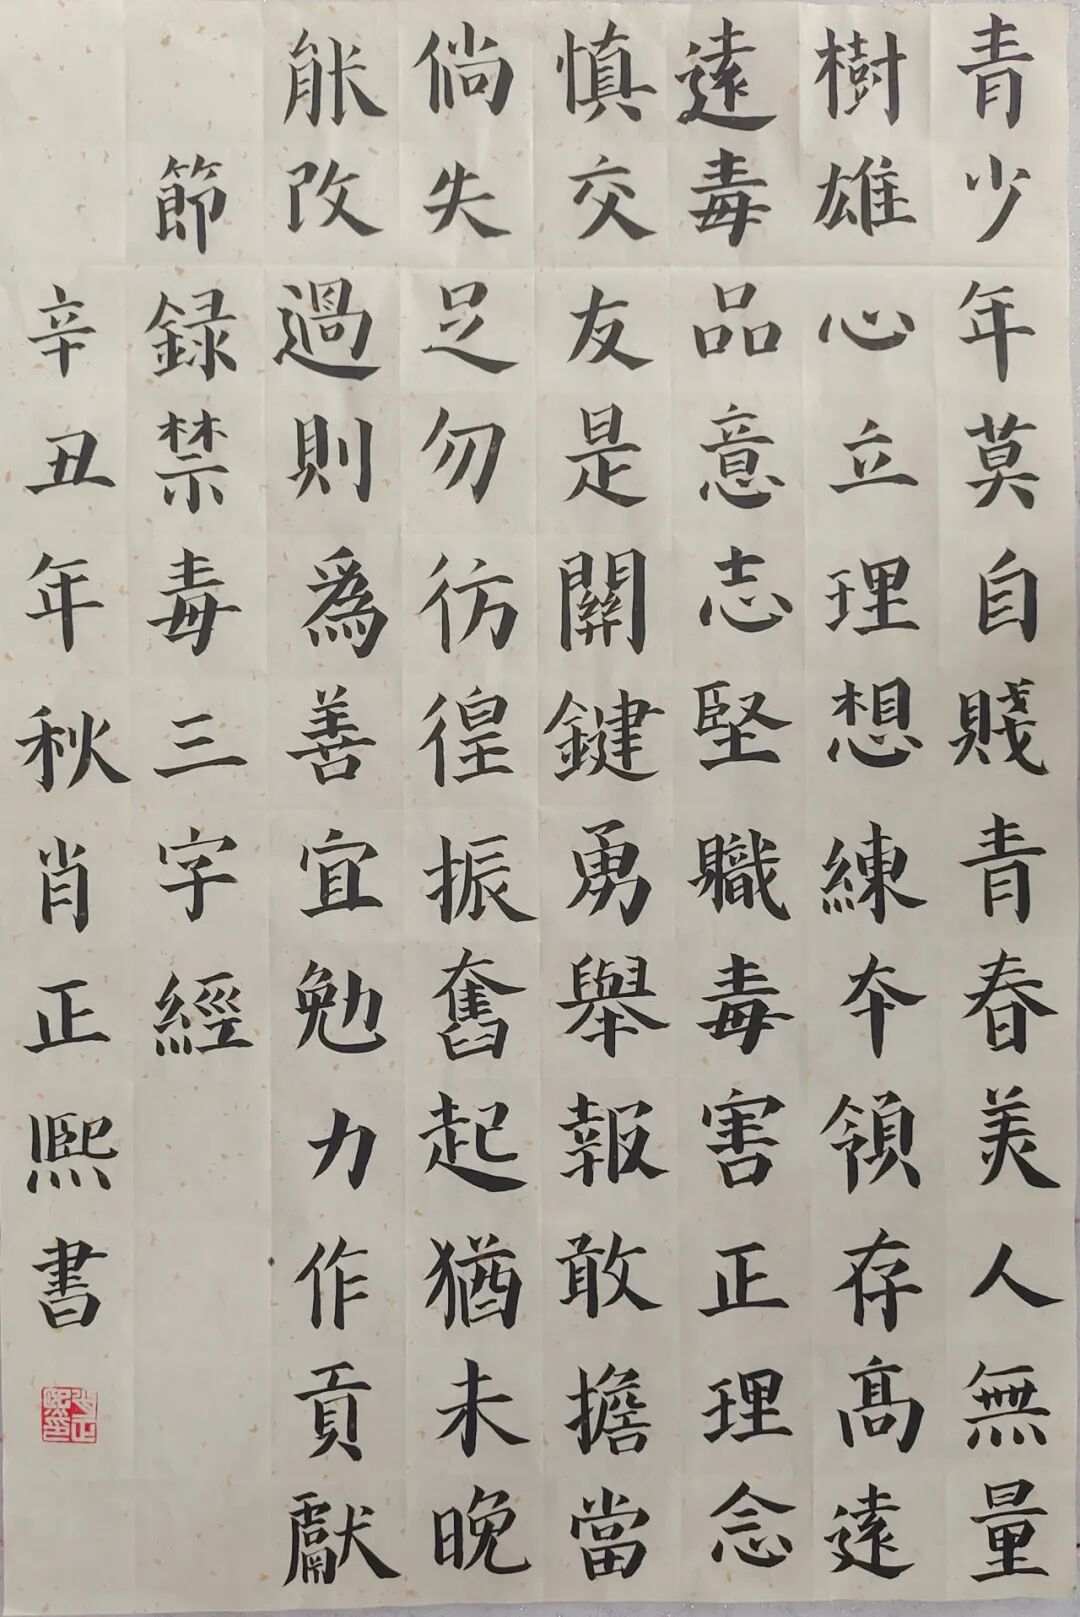 青少年莫自賤青春美人無量
樹雄心立理想練本領存高遠
遠毒品意志堅職毒害正理念
慎交友是關鍵勇舉報敢擔當
倘失足勿彷徨振奮起猶未晚
能改過則為善宜勉力作貢獻
節録禁毒三字經
辛丑年秋肖正熙書
肖正熙印